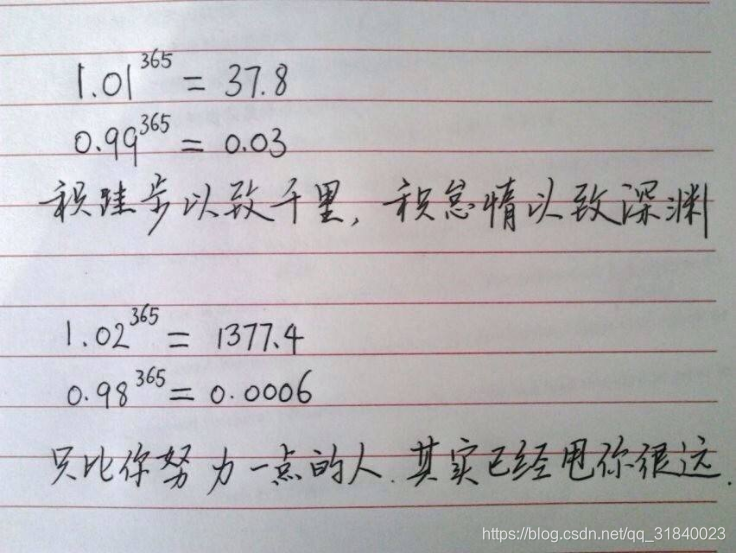 1.01^365 = 37.8
0.99^365 = 0.03
积跬步以致千里，积怠惰以致深渊
1.02^365 = 1377.4
0.98^365 = 0.0006
只比你努力一点的人.其实已经甩你很远.
https://blog.csdn.net/qq_31840023